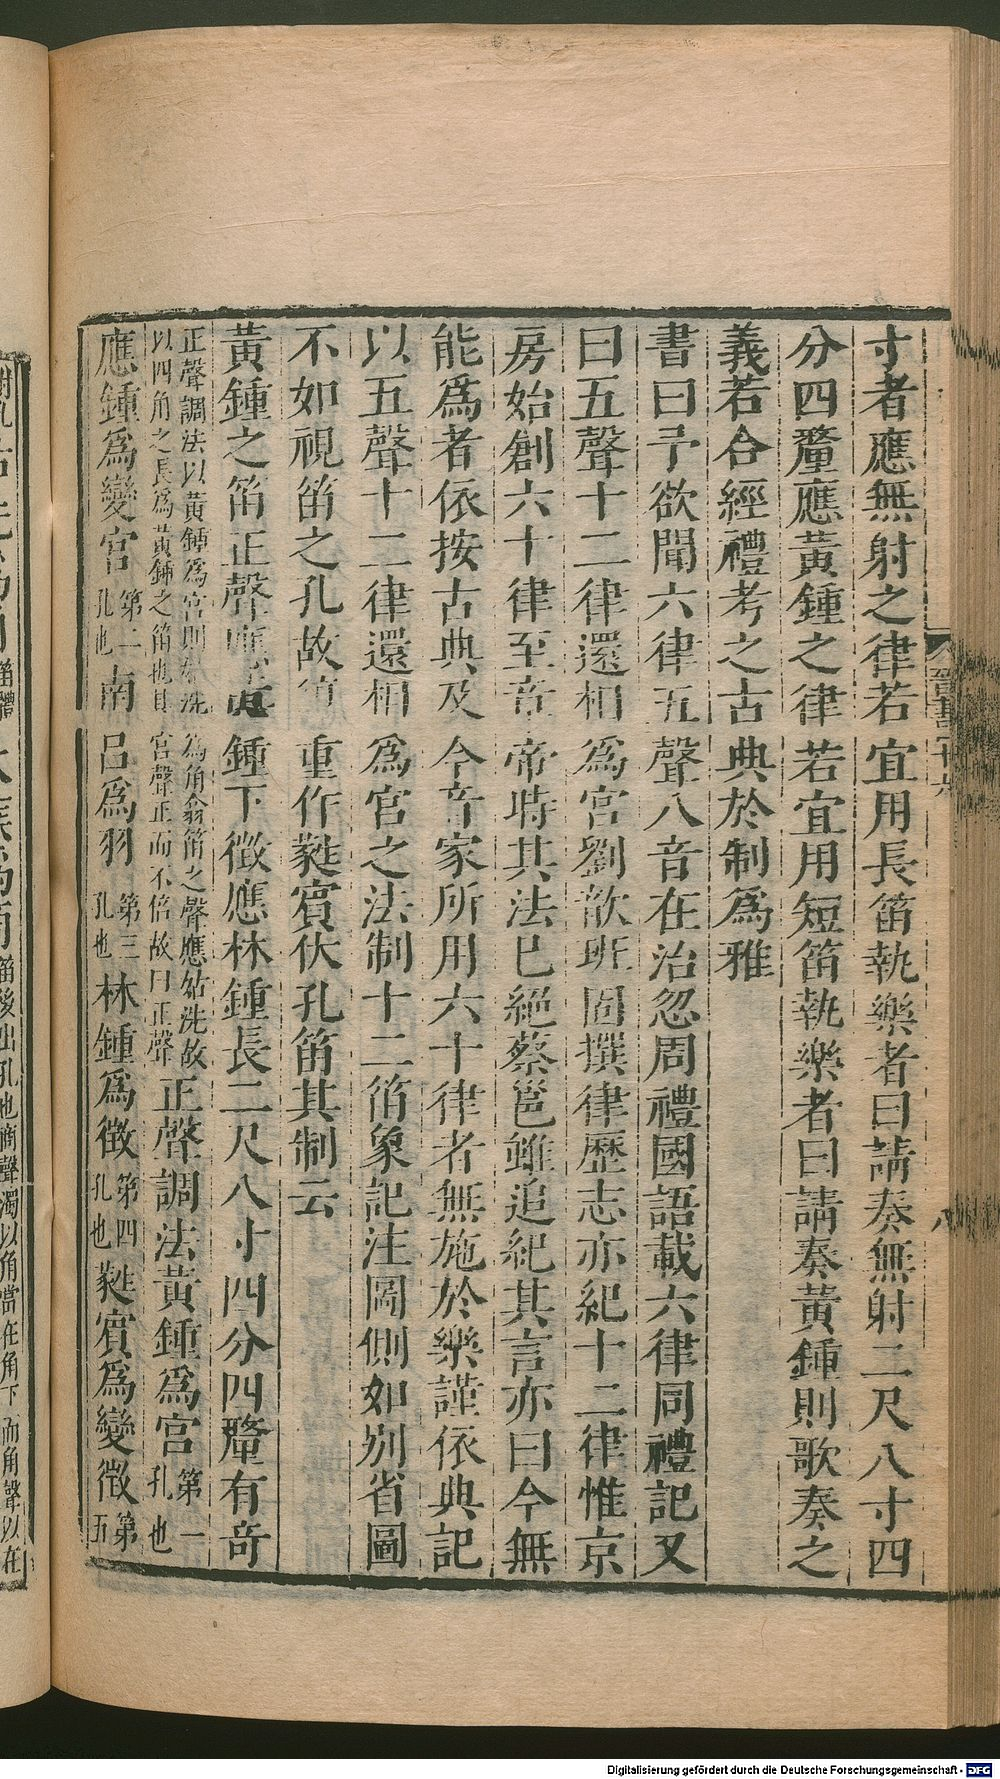 寸者應無射之律若宜用長笛執樂者曰請奏無射二尺八寸四
分四釐應黃鍾之律若宜用短笛執樂者曰請奏黃鍾則歌奏之
義若合經禮考之古典於制爲雅
書曰予欲聞六律五聲八音在治忽周禮國語載六律同禮記又
曰五聲十二律還相爲宮劉歆班固撰律歷志亦紀十二律惟京
房始創六十律至章帝時其法已絕蔡邕雖追紀其言亦曰今無
能爲者依按古典及今音家所用六十律者無施於樂謹依典記
以五聲十二律還相爲宮之法制十二笛象記注圖側如別省圖
不如視笛之孔故 重作蕤賓伏孔笛其制云
黃鍾之笛正聲應黃鍾下徵應林鍾長二尺八寸四分四釐有奇
正聲調法以黃鍾爲宮則姑洗爲角翕笛之聲應姑洗故
以四角之長爲黃鍾之笛也其宮聲正而不倍故曰正聲
正聲調法黃鍾爲宮第一孔也
應鍾爲變宮第二孔也南呂爲羽第三孔也林鍾爲徵第四孔也蕤賓爲變徵第五
晉書 十六
八
笛體
笛後出孔也商聲濁以角當在角下而角聲以在
Digitalisierung gefördert durch die Deutsche Forschungsgemeinschaft - DFG